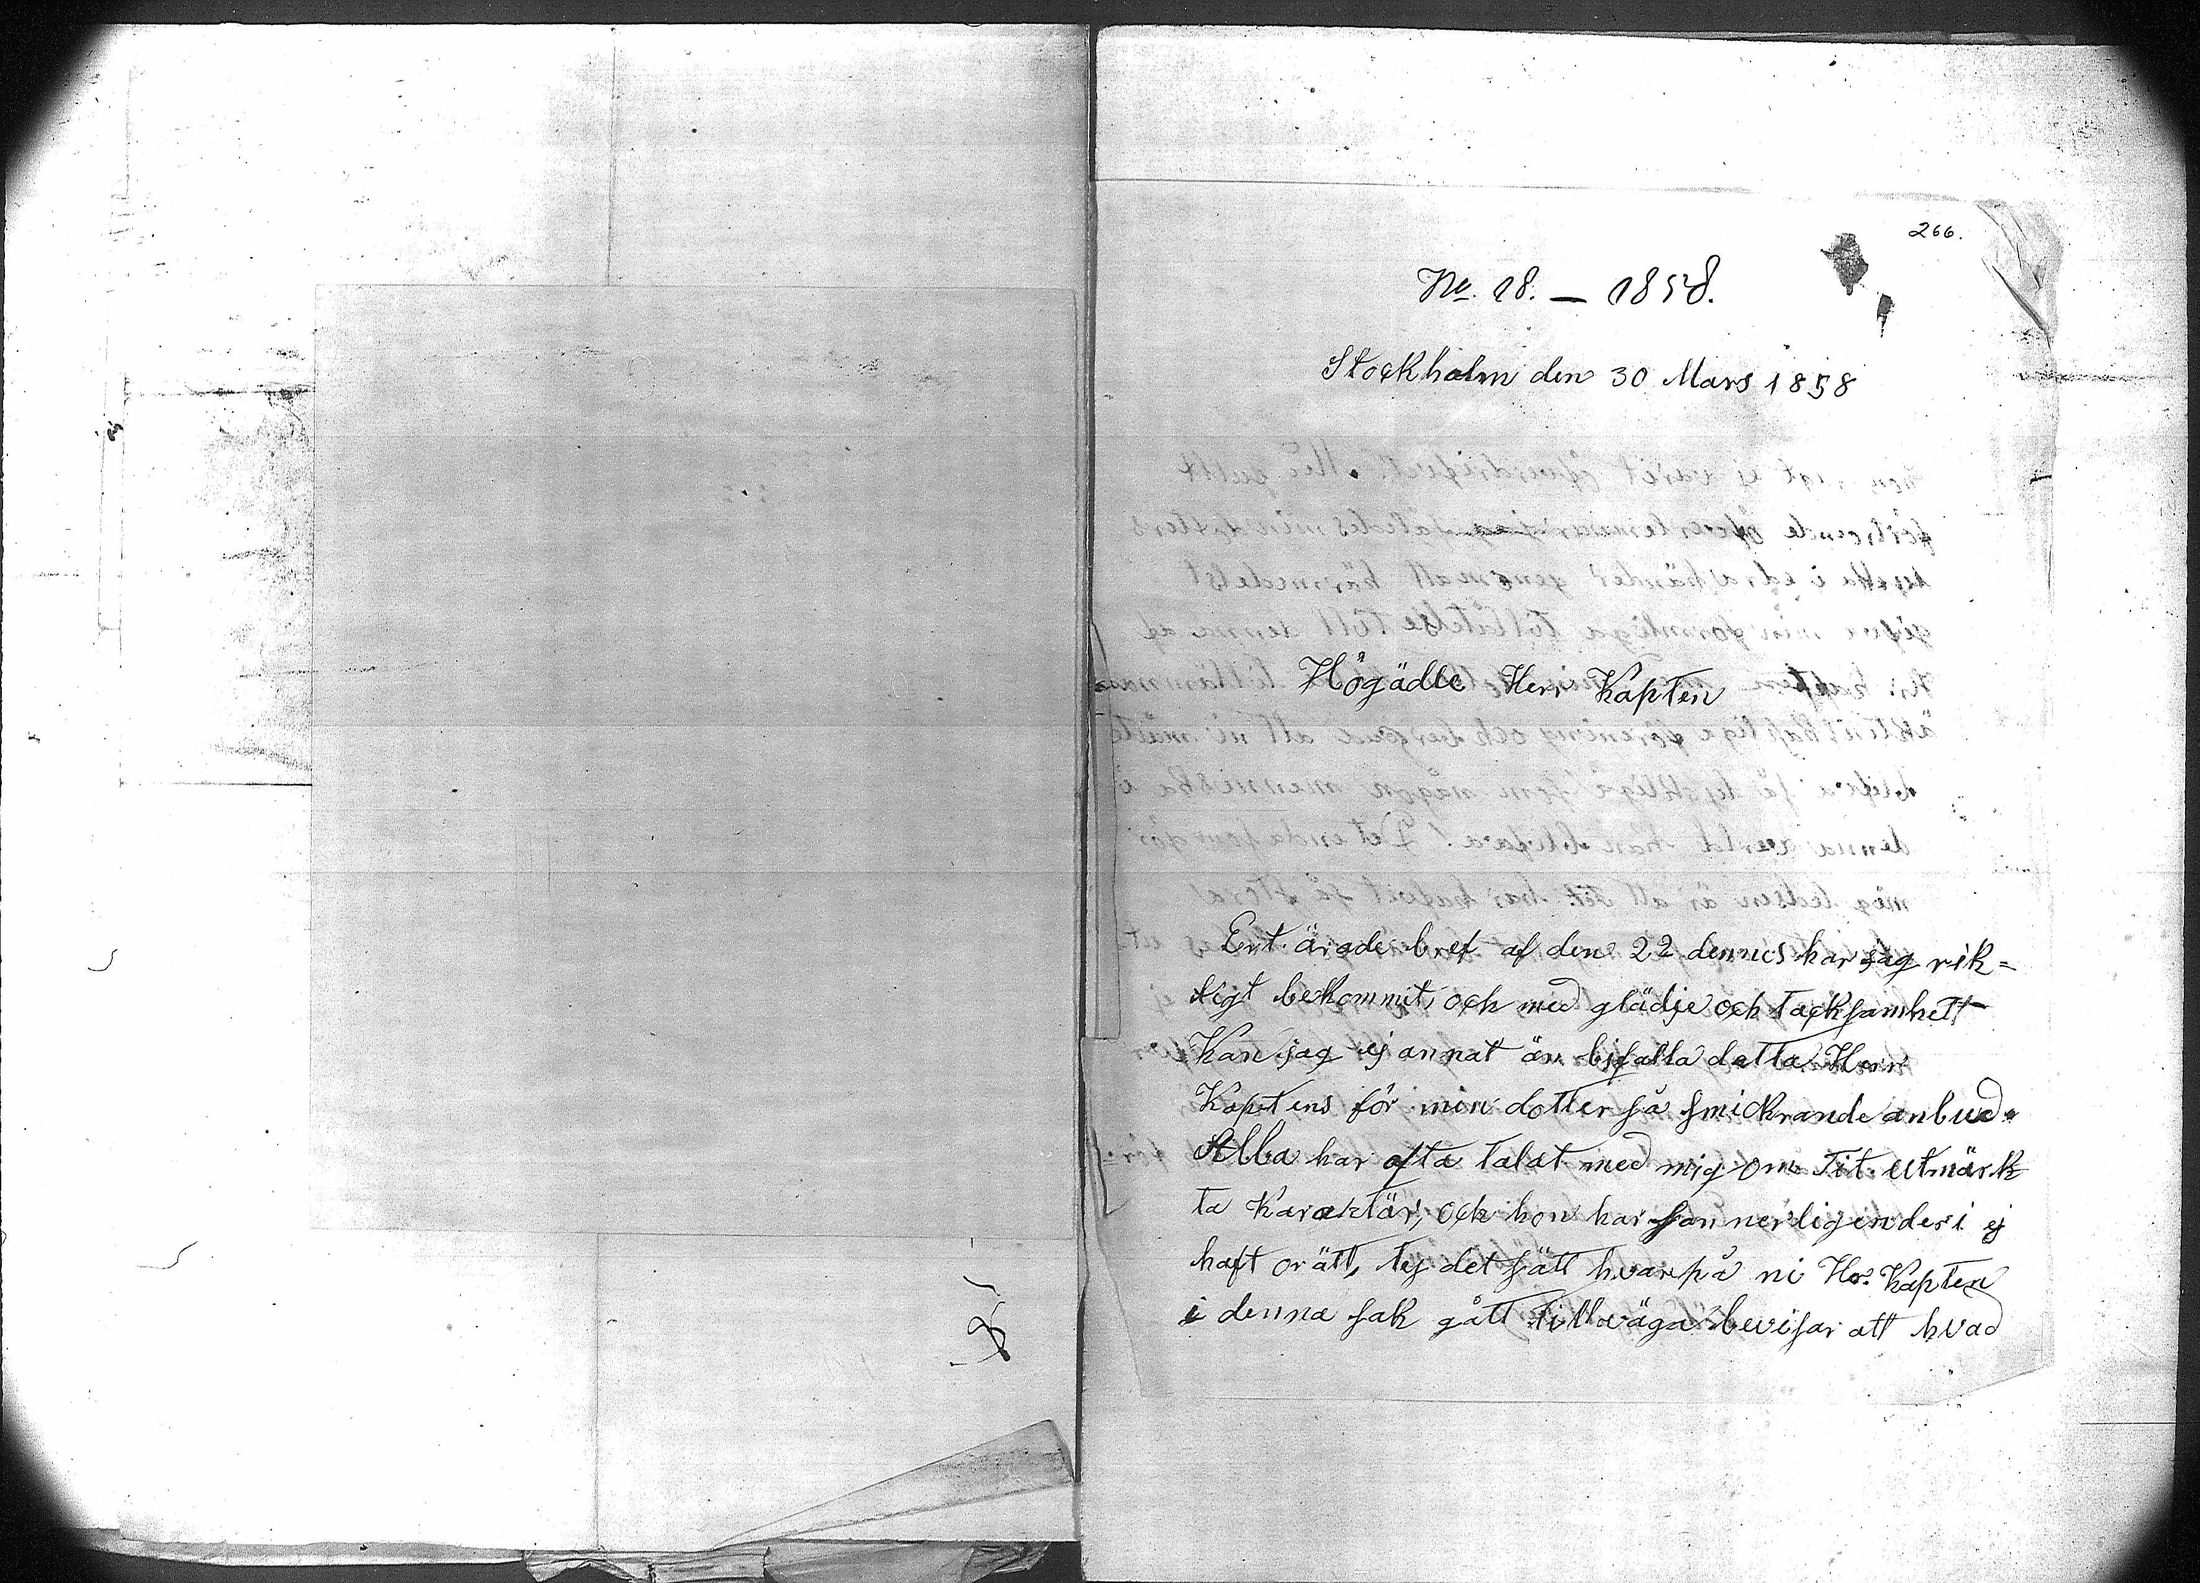 266.
No. 18. — 1858.
Stockholm den 30 Mars 1858
Högädle Herr Kapten
Ert ärade bref af den 22 dennes har jag rik=
tigt bekommit, och med glädje och tacksamhett
Kan jag ej annat än bifalla detta Herr
Kaptens för min dotter så smickrande anbud.
Alba har ofta talat med mig om Tit. utmärk
ta Karaktär, och hon har sannerligen deri ej
haft orätt, tej det sätt hvarpå ni Hr. Kapten
i denna sak gått tillväga bevisar att hvad